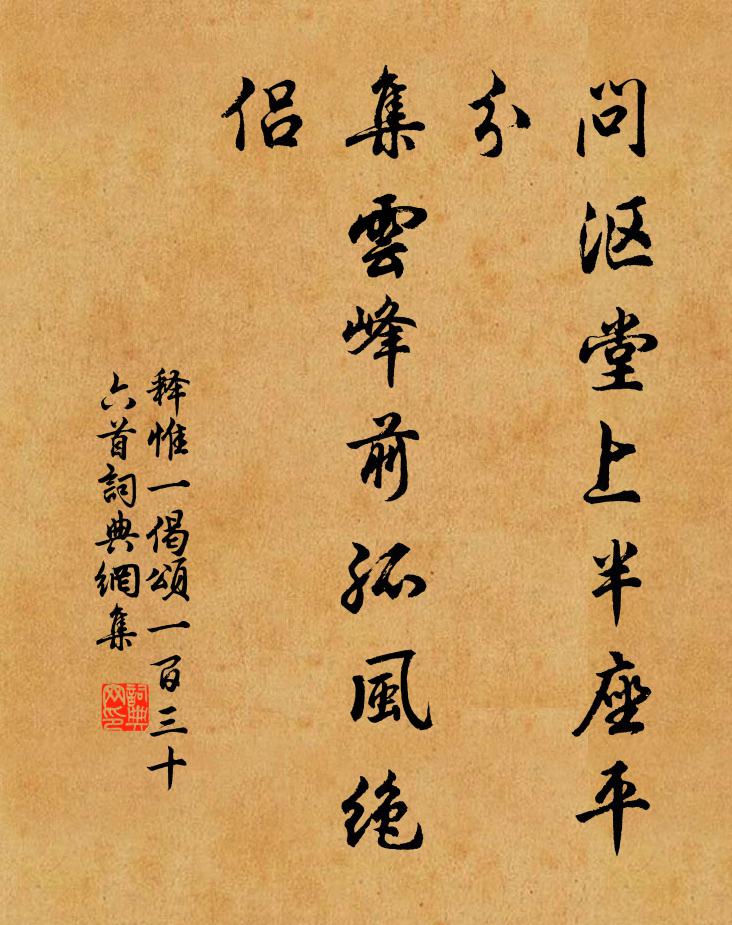 问沤堂上半座平
分
集雲峰前孤風绝
侣
释惟一偈頌一百三十
六首詞典網集
詞典
网印